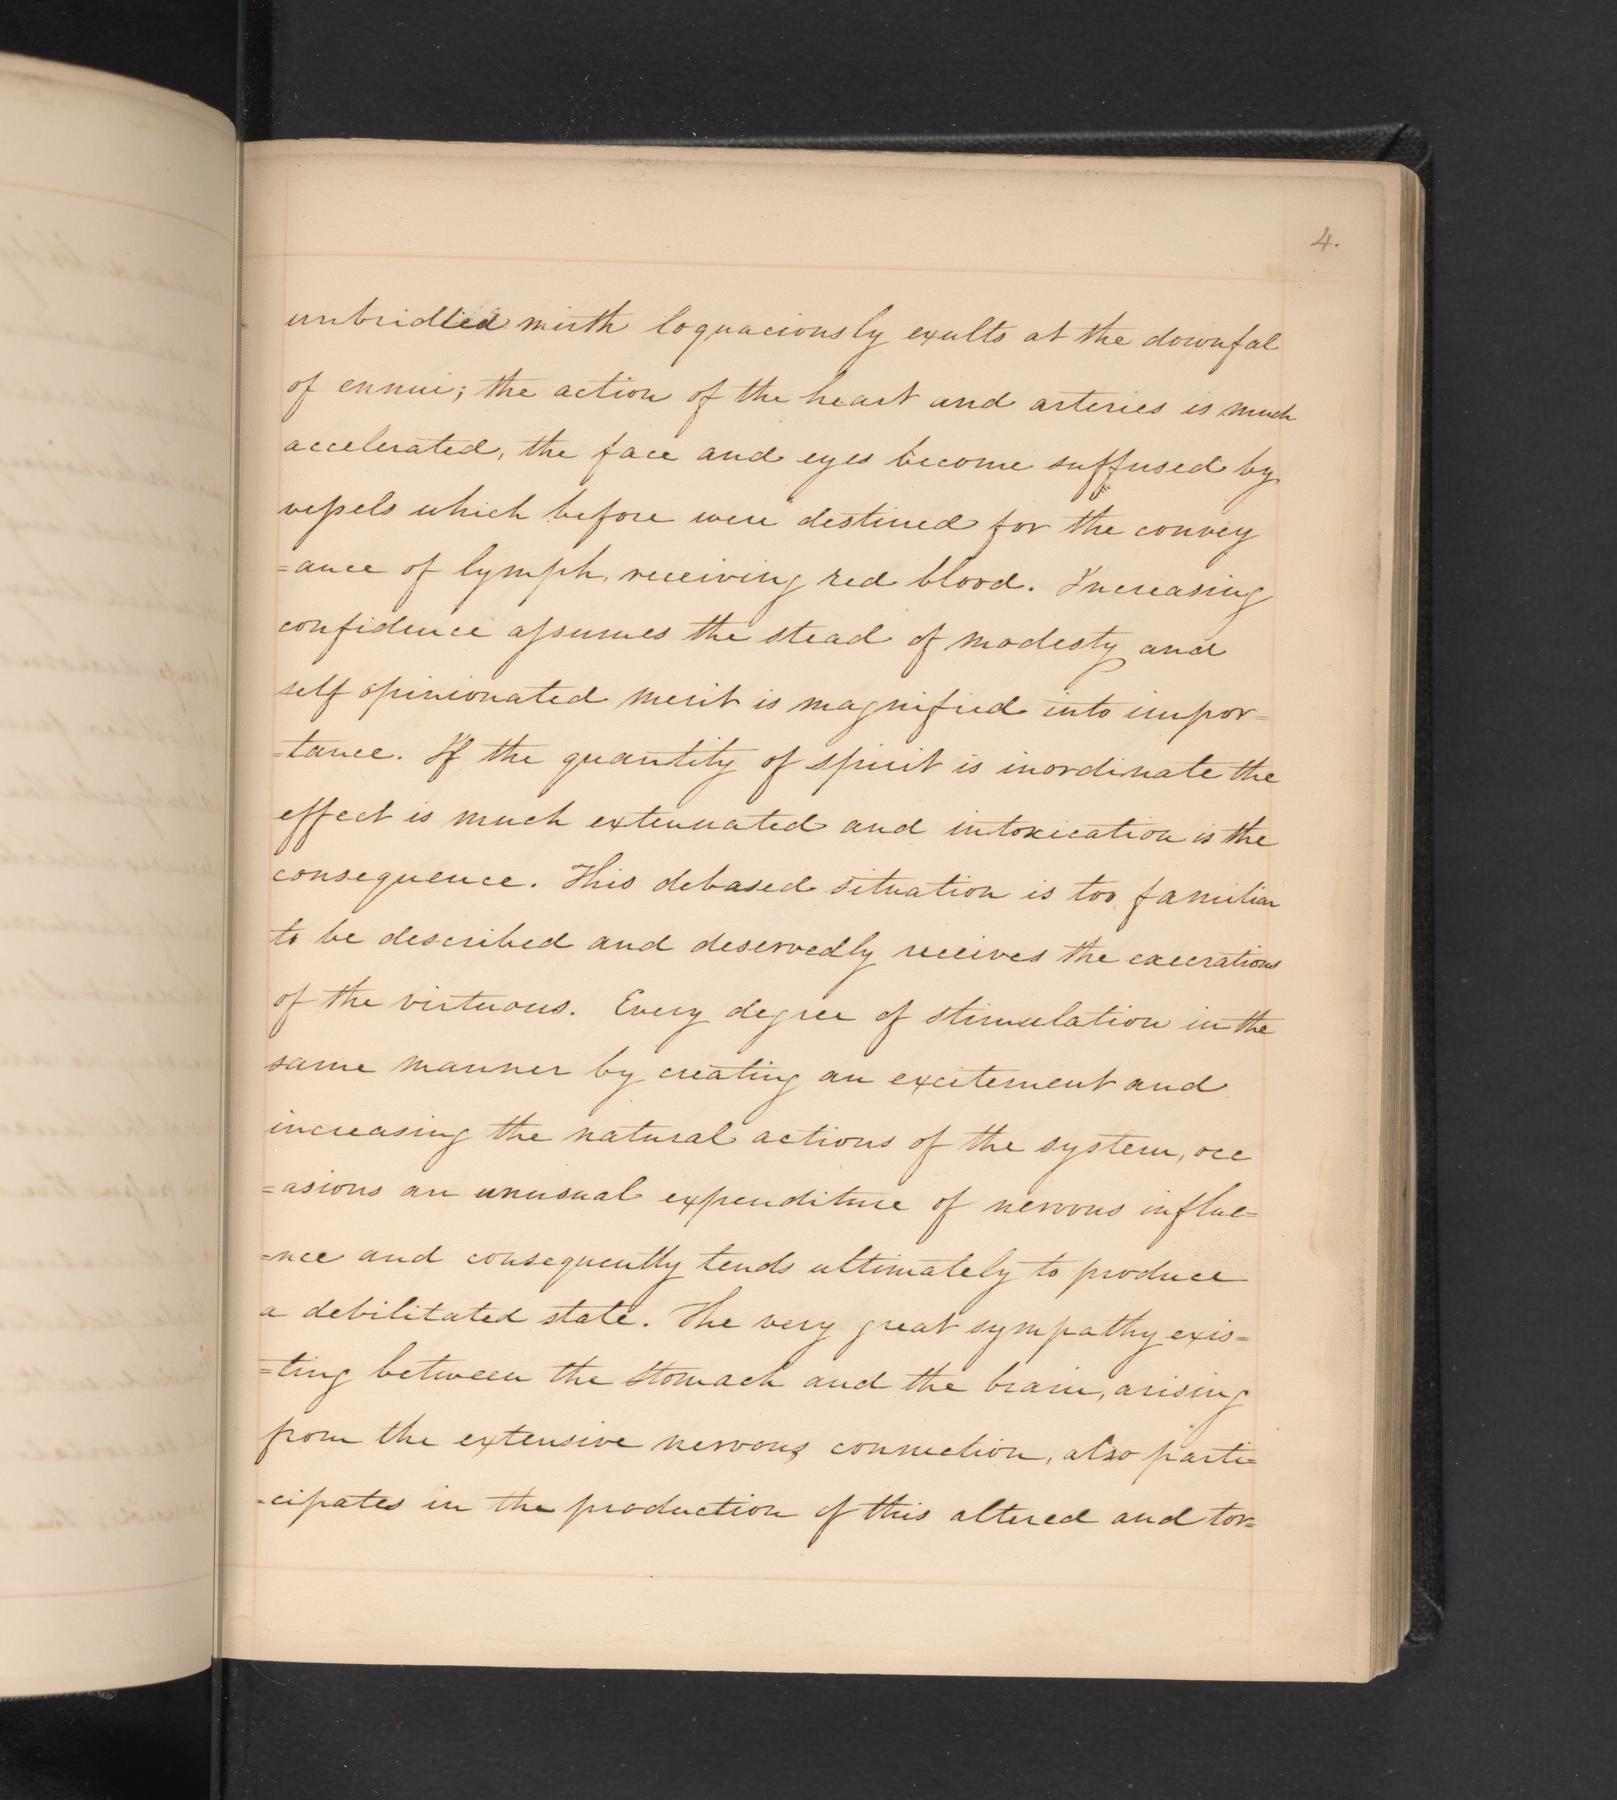 4.
unbridled mirth loquaciously exults at the downfal
of ennui; the action of the heart and arteries is much
accelerated, the face and eyes become suffused by
vessels which before were destined for the convey
=ance of lymph, receiving red blood. Increasing
confidence assumes the stead of modesty and
self opinionated merit is magnified into impor=
=tance. If the quantity of spirit is inordinate the
effect is much extenuated and intoxication is the
consequence. This debased situation is too familiar
to be described and deservedly receives the execrations
of the virtuous. Every degree of stimulation in the
same manner by creating an excitement and
increasing the natural actions of the system, occ
=asions an unusual expenditure of nervous influe=
=nce and consequently tends ultimately to produce
a debilitated state. The very great sympathy exis=
=ting between the stomach and the brain, arising
from the extensive nervous connection, also parti=
=cipates in the production of this altered and tor=